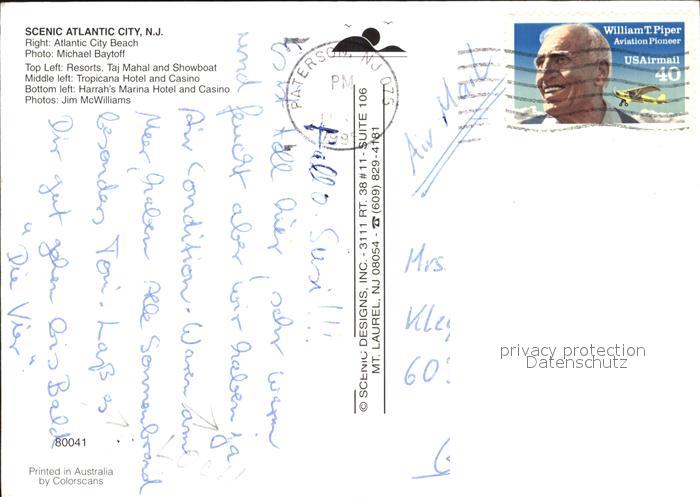 SCENIC ATLANTIC CITY, N.J.
Right: Atlantic City Beach
Photo: Michael Baytoff
Top Left: Resorts, Taj Mahal and Showboat
Middle left: Tropicana Hotel and Casino
Bottom left: Harrah's Marina Hotel and Casino
Photos: Jim McWilliams
Hallo Susi!!!
Echt toll hier (sehr warm
und feucht aber wir haben ja
Air Condition - Waren am
Meer, haben alle Sonnenbrand
besonders Toni - Laß es
Dir gut gehen bis Bald
"Die Vier"
80041
Printed in Australia
by Colorscans
© SCENIC DESIGNS, INC. - 3111 RT. 38 #11 - SUITE 106
MT. LAUREL, NJ 08054 - ☎ (609) 829-4161
PATERSON, NJ 075
PM
William T. Piper
Aviation Pioneer
USAirmail
40
Air Mail
Mrs
60
privacy protection
Datenschutz